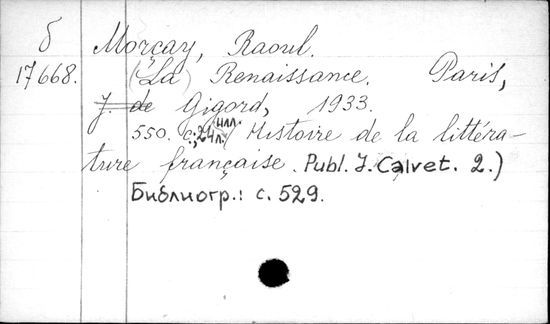 б Morçay, Raoul.
17668. (La) Renaissance. Paris,
J. de Gigord, 1933.
550. с., 24 л. илл. (Histoire de la littéra-
ture française. Publ. J. Calvet. 2.)
Библиогр.: с. 529.